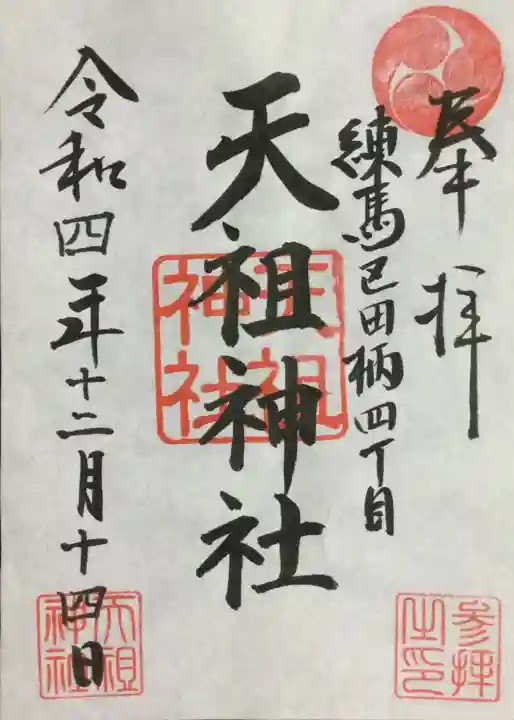 奉拝
練馬区田柄四丁目
天祖神社
天祖神社
令和四年十二月十四日
参拝之印
天祖神社